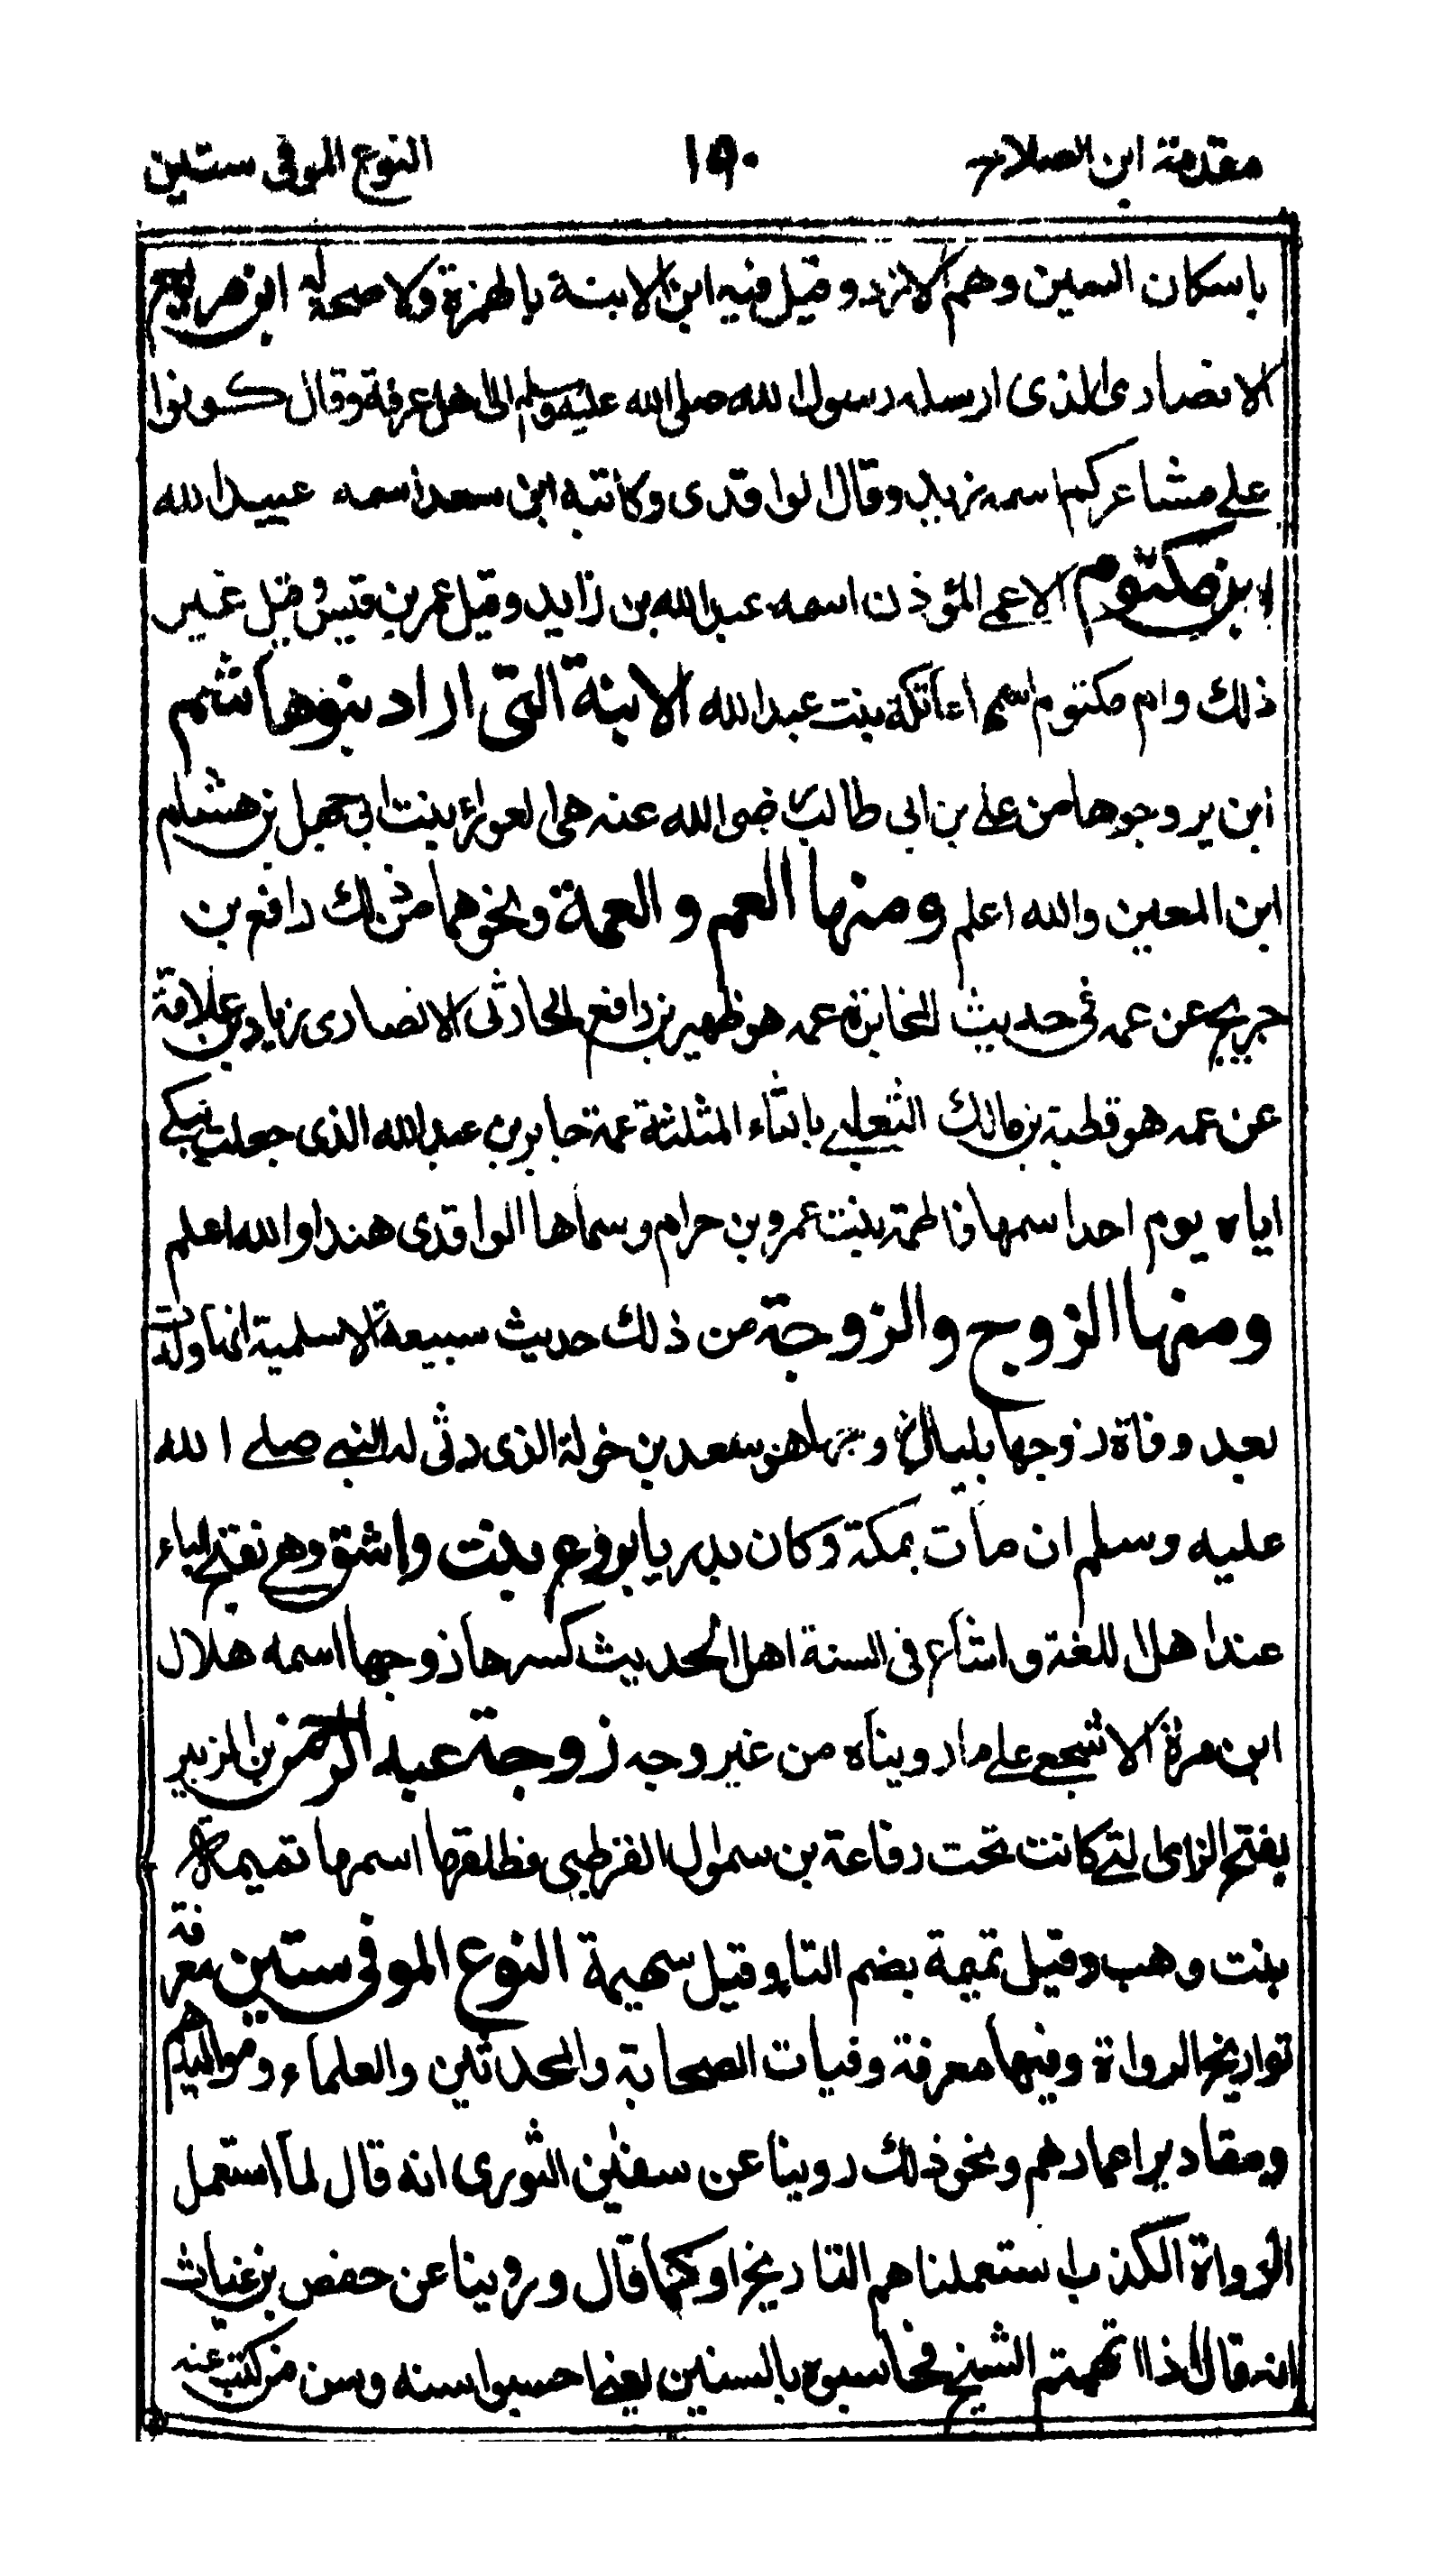 مقدمة ابن الصلاح ١٥٩٠ النوع الموفى ستين
باسكان السين وهم الازد وقيل فيه ابن الابنة بالهمزة ولا صحة له ابن مربع
الانصارى الذى ارسله رسول الله صلى الله عليه وسلم الى اهل عرفة وقال كونوا
على مشاعركم اسمه يزيد وقال الواقدى وكاتبه ابن سعد اسمه عبيد الله
ابن مكتوم الاعمى المؤذن اسمه عبد الله بن زايد وقيل عمر بن قيس وقيل غير
ذلك وام مكتوم اسمها عاتكة بنت عبد الله الابنة التى اراد بنو هاشم
ابن يزوجوها من على بن ابى طالب رضى الله عنه هى العوراء بنت ابى جهل بن هشام
ابن المعين والله اعلم ومنها العم والعمة ونحوهما من ذلك رافع بن
جريج عن عمه فى حديث المخابرة عمه هو ظهير بن رافع الحارثى الانصارى زياد بن علاقة
عن عمه هو قطبة بن مالك الثعلبى بالثاء المثلثة عمة جابر بن عبد الله الذى جعلت تبكى
اياه يوم احد اسمها فاطمة بنت عمرو بن حرام وسماها الواقدى هندا والله اعلم
ومنها الزوج والزوجة من ذلك حديث سبيعة الاسلمية انها ولدت
بعد وفاة زوجها بليال زوجها هو سعد بن خولة الذى رثى له النبى صلى الله
عليه وسلم ان مات بمكة وكان بدريا بروع بنت واشق وهى بفتح الباء
عند اهل اللغة وانشاع فى السنة اهل الحديث كسرها زوجها اسمه هلال
ابن مرة الاشجعى على ما رويناه من غير وجه زوجة عبد الرحمن بن الزبير
بفتح الزاى التى كانت تحت رفاعة بن سموال القرظى فطلقها اسمها تميمة
بنت وهب وقيل تميمة بضم التا وقيل سهيمة النوع الموفى ستين معرفة
تواريخ الرواة وفيها معرفة وفيات الصحابة والمحدثين والعلماء ومواليدهم
ومقادير اعمارهم ونحو ذلك روينا عن سفين الثورى انه قال لما استعمل
الرواة الكذب استعملنا هم التاريخ او كما قال وروينا عن حفص بن غياث
انه قال اذا اتهمتم الشيخ فحاسبوه بالسنين يعنى احسبوا سنه وسن من كتب عنه